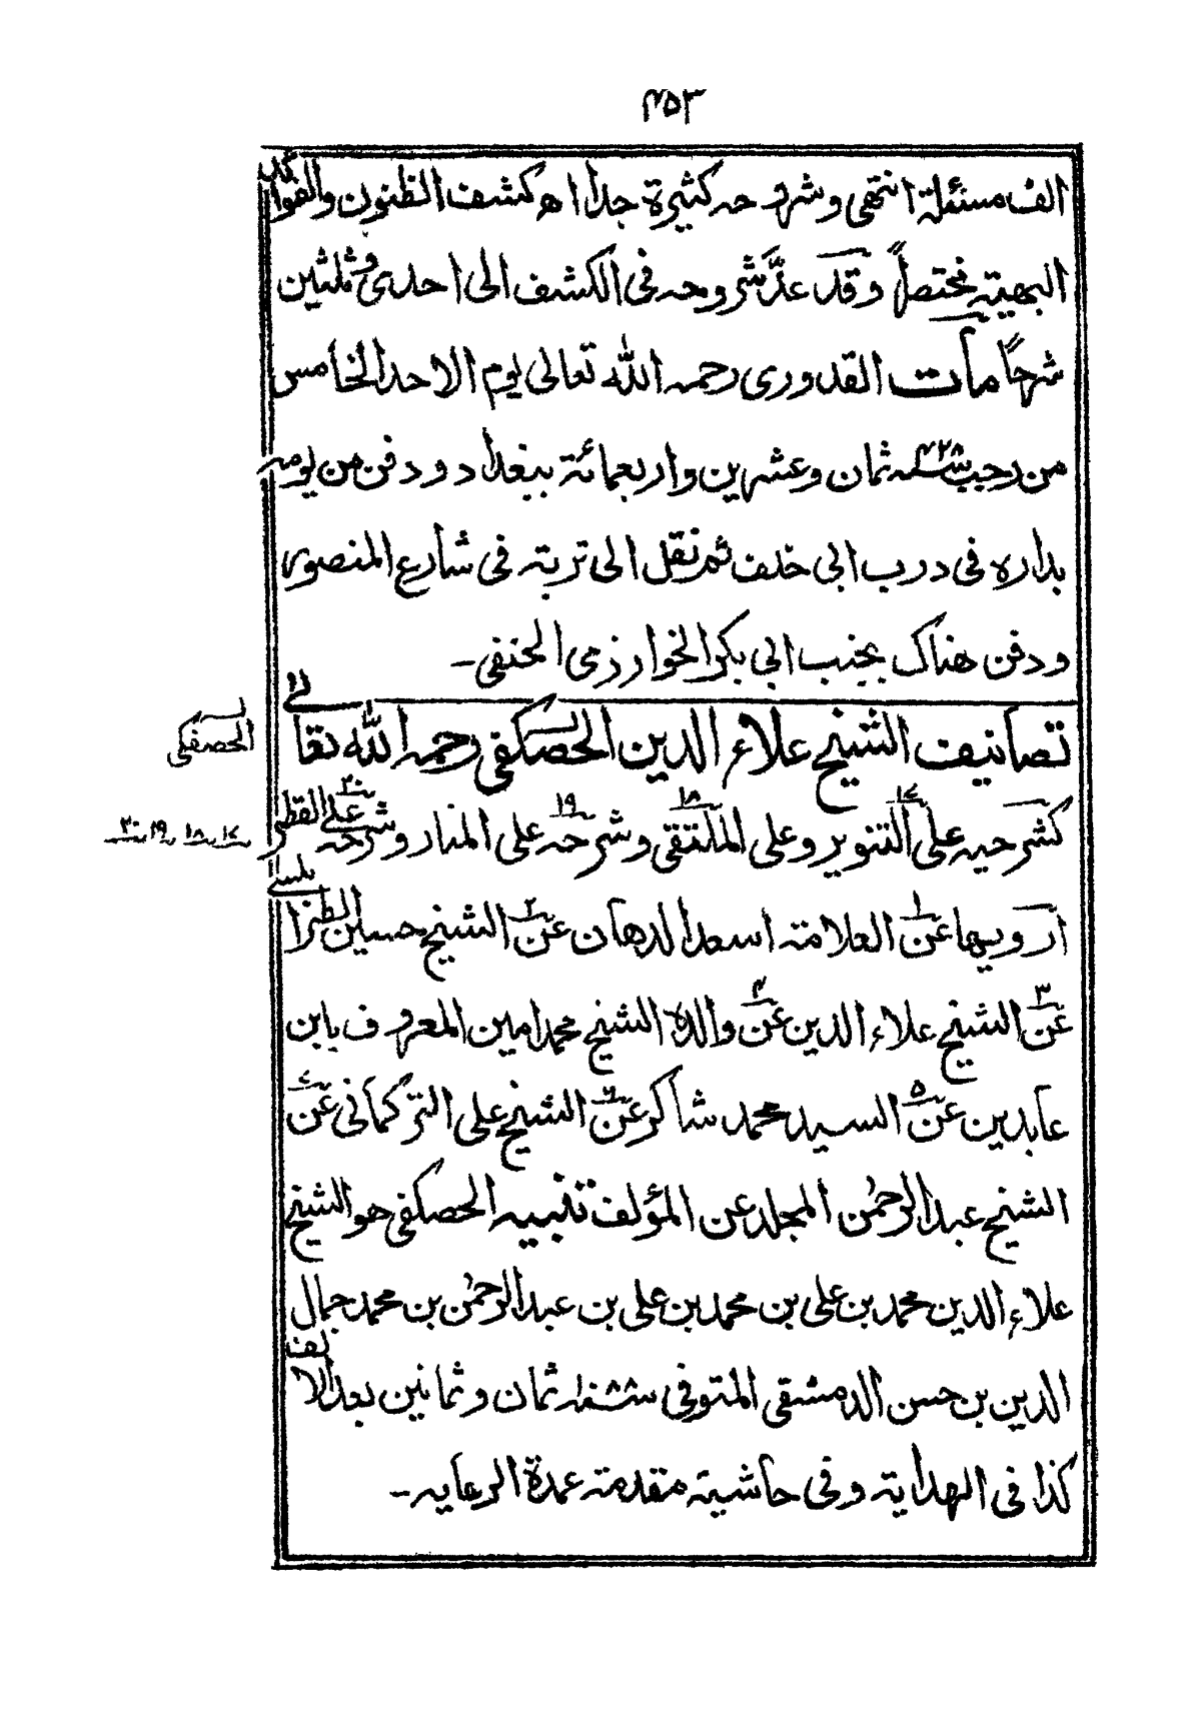 ۴۵۳
الف مسئلة انتهى وشروحه كثيرة جدا اه كشف الظنون والفوائد
البهية مختصراً وقد عدّ شروحه فى الكشف الى احدى وثلثين
شرحًا مات القدورى رحمه الله تعالى يوم الاحد الخامس
من رجب سنة ۴۲۸ ثمان وعشرين واربعمائة ببغداد ودفن من يومه
بداره فى درب ابى خلف ثم نقل الى تربة فى شارع المنصور
ودفن هناك بجنب ابى بكر الخوارزمى الحنفى۔
تصانيف الشيخ علاء الدين الحصكفى رحمه الله تعالى
الحصفكى
كشرحيه على التنوير ۱۷ وعلى الملتقى ۱۸ وشرحه على المنار ۱۹ وشرحه على القطر ۲۰
۱۷ ۱۸ ۱۹ ۲۰
ارويها عن ۱ العلامة اسعد الدهان عن ۲ الشيخ حسين الطرابلسى
عن ۳ الشيخ علاء الدين عن ۴ والده الشيخ محمد امين المعروف بابن
عابدين عن ۵ السيد محمد شاكر عن ۶ الشيخ على التركمانى عن ۷
الشيخ عبد الرحمن المجلد عن المؤلف تنبيه الحصكفى هو الشيخ
علاء الدين محمد بن على بن محمد بن على بن عبد الرحمن بن محمد جمال
الدين بن حسن الدمشقى المتوفى سنة ثمان وثمانين بعد الالف
كذا فى الهداية وفى حاشية مقدمة عمدة الرعايه۔